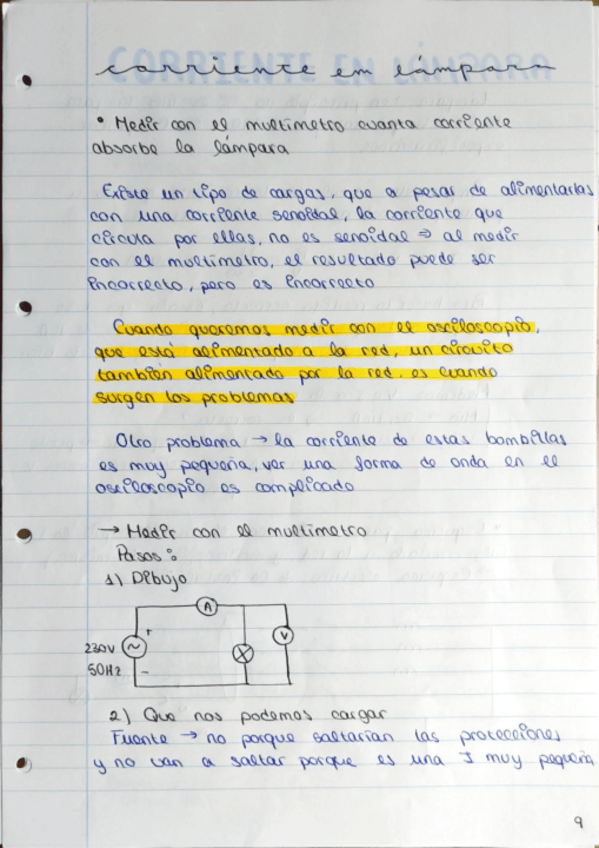 corriente em lámpara
• Medir con el multímetro cuanta corriente
absorbe la lámpara
Existe un tipo de cargas, que a pesar de alimentarlas
con una corriente senoidal, la corriente que
circula por ellas, no es senoidal ⇒ al medir
con el multímetro, el resultado puede ser
incorrecto, pero es incorrecto
Cuando queremos medir con el osciloscopio,
que está alimentado a la red, un circuito
también alimentado por la red, es cuando
surgen los problemas
Otro problema → la corriente de estas bombillas
es muy pequeña, ver una forma de onda en el
osciloscopio es complicado
→ Medir con el multímetro
Pasos:
1) Dibujo
A
230V
50Hz
+
~
-
V
2) Que nos podemos cargar
Fuente → no porque saltarían las protecciones
y no van a saltar porque es una I muy pequeña
9